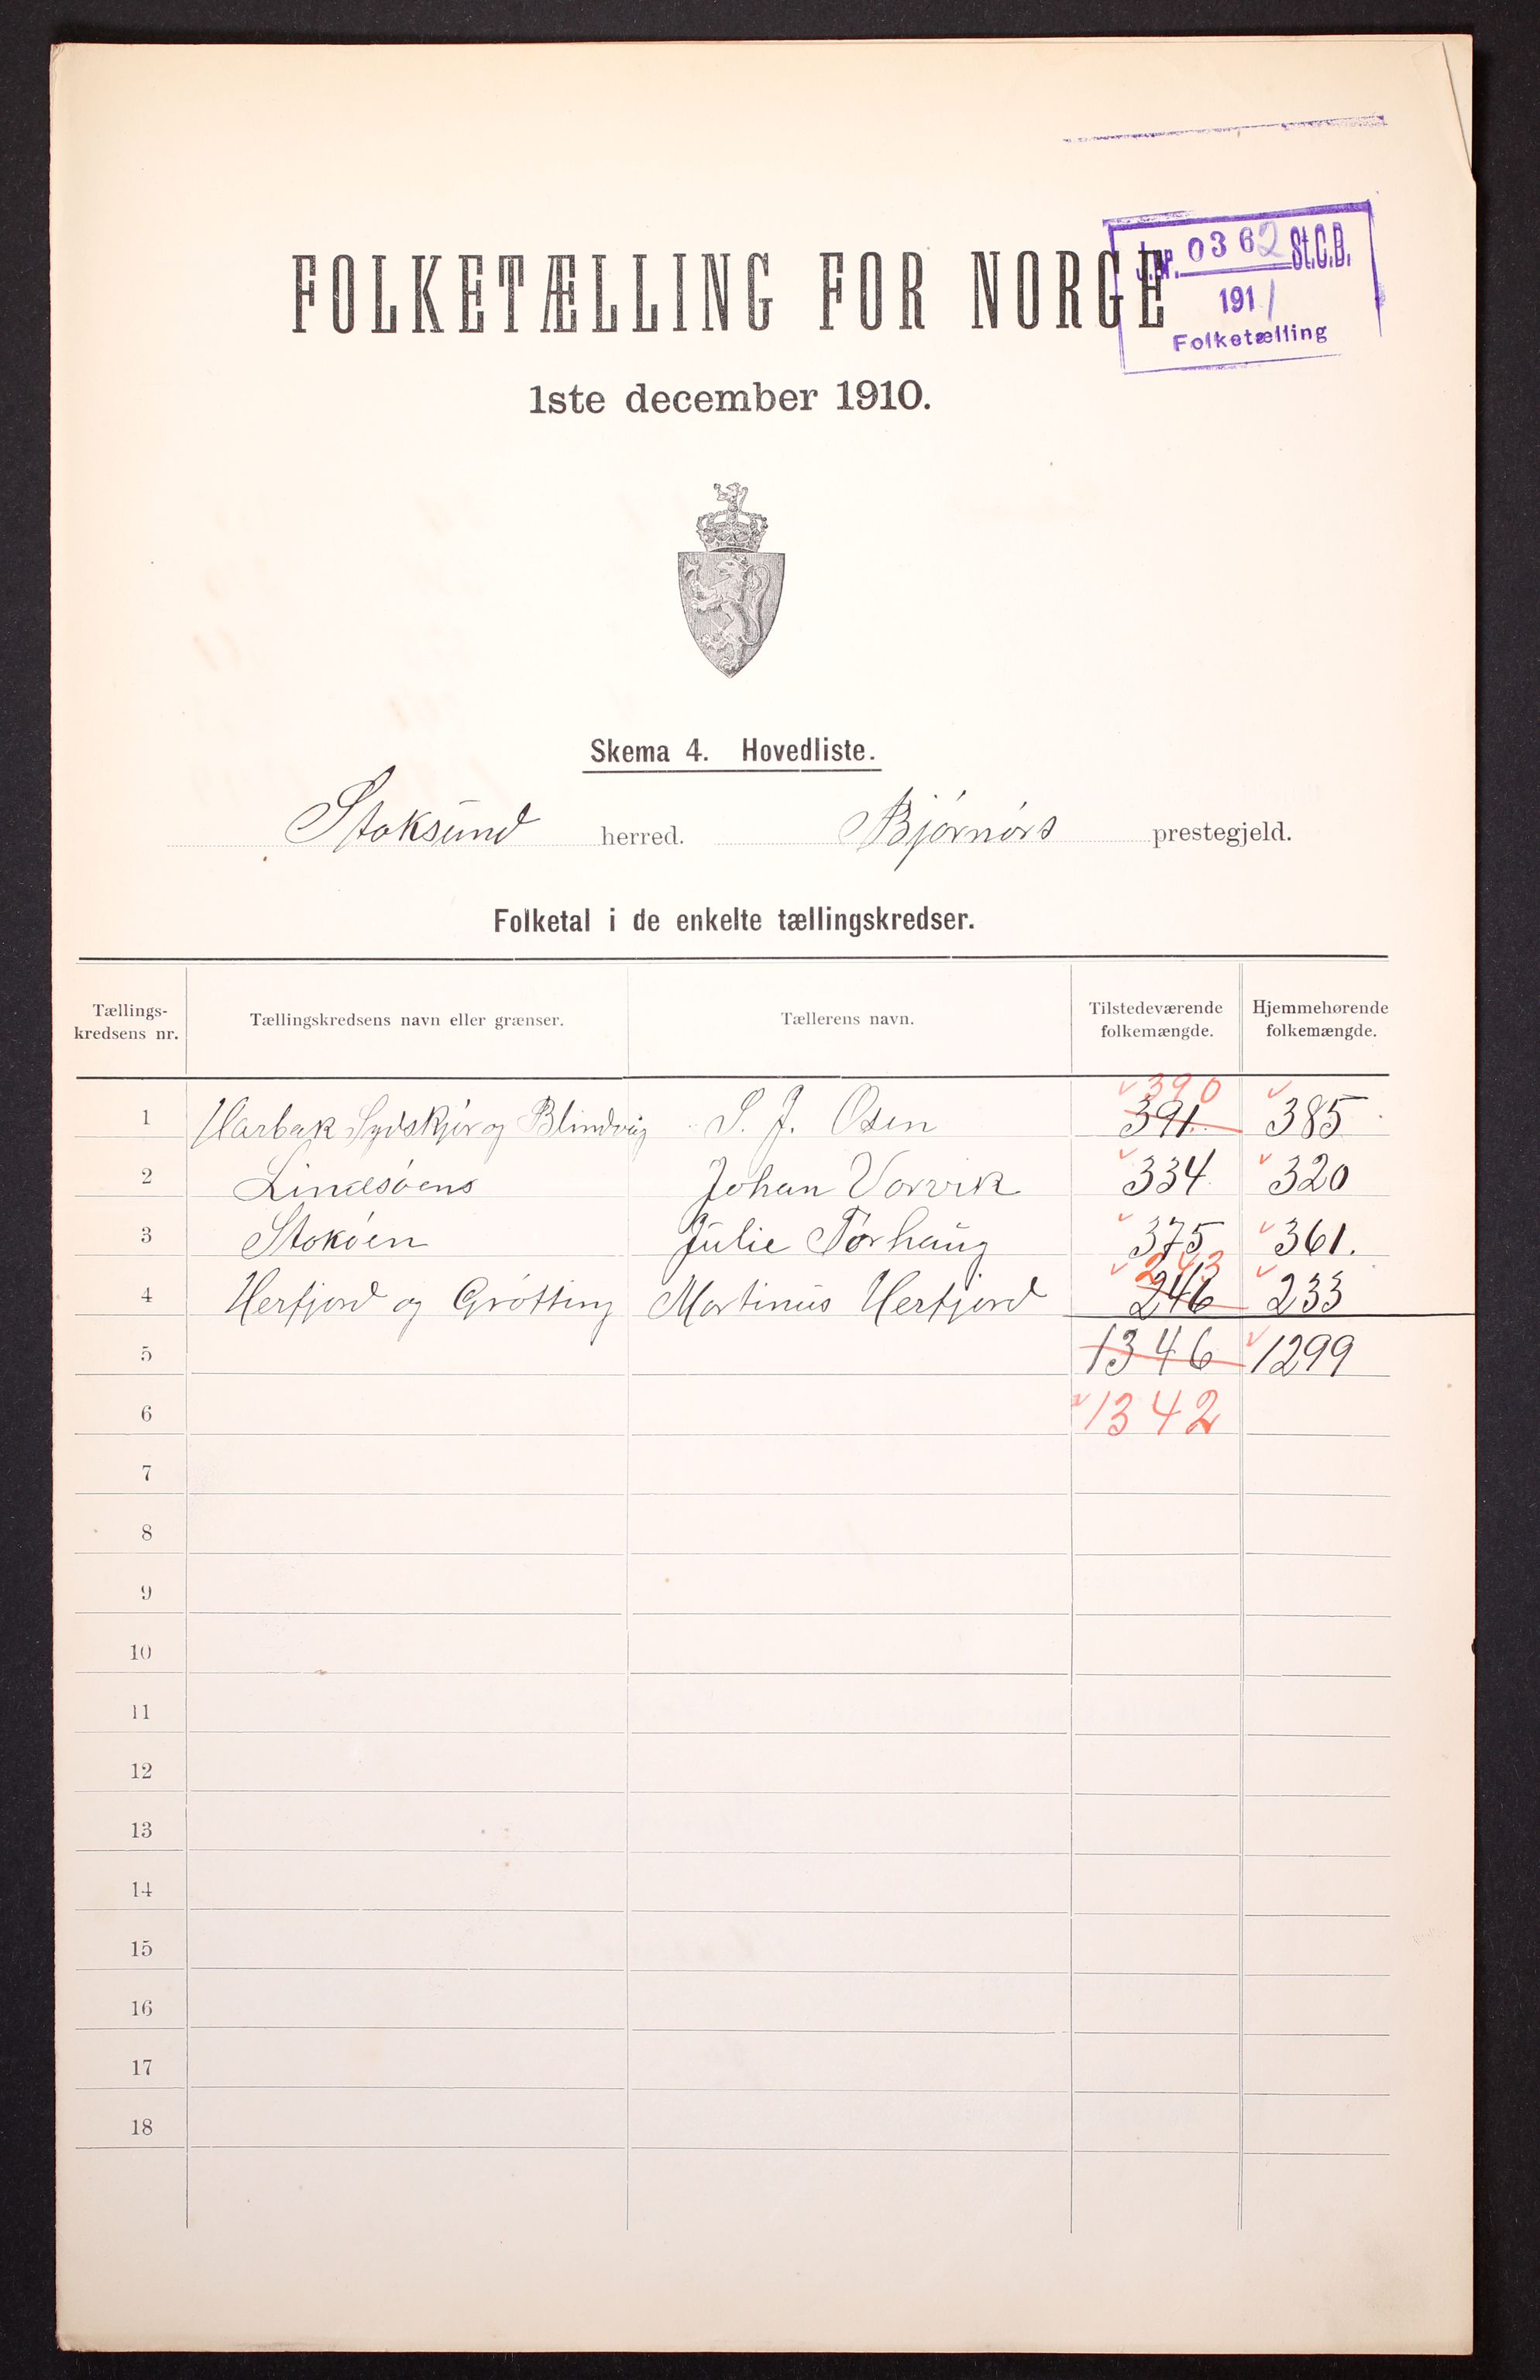 J.nr. 0362 St.C.B.
1911
Folketælling
FOLKETÆLLING FOR NORGE
1ste december 1910.
Skema 4. Hovedliste.
Stoksund herred. Bjørnørs prestegjeld.
Folketal i de enkelte tællingskredser.
Tællings-kredsens nr. Tællingskredsens navn eller grænser. Tællerens navn. Tilstedeværende folkemængde. Hjemmehørende folkemængde.
390
1 Harbak Sydskjør og Blindvig S. J. Osen 391. 385
2 Lindsøens Johan Vorvik 334 320
3 Stokøen Julie Torhaug 375 361.
243
4 Herfjord og Grøtting Martinus Herfjord 246 233
5 1346 1299
6 1342
7
8
9
10
11
12
13
14
15
16
17
18